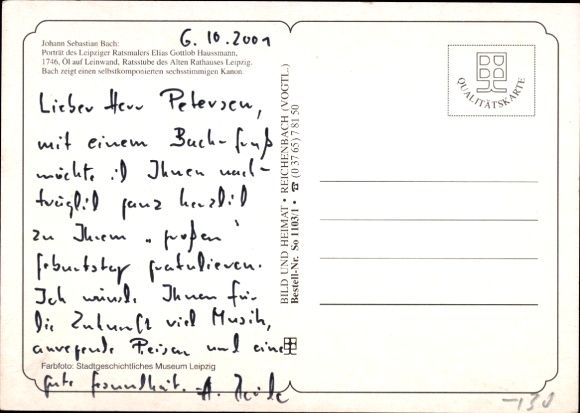 6.10.2001
Johann Sebastian Bach:
Porträt des Leipziger Ratsmalers Elias Gottlob Haussmann,
1746, Öl auf Leinwand, Ratsstube des Alten Rathauses Leipzig.
Bach zeigt einen selbstkomponierten sechsstimmigen Kanon.
Lieber Herr Petersen,
mit einem Bach-Gruß
möchte ich Ihnen nach-
träglich ganz herzlich
zu Ihrem „großen"
Geburtstag gratulieren.
Ich wünsche Ihnen für
die Zukunft viel Musik,
anregende Reisen und eine
Farbfoto: Stadtgeschichtliches Museum Leipzig
gute Gesundheit.
BILD UND HEIMAT • REICHENBACH (VOGTL.)
Bestell-Nr. So 1103/1 • ☎ (0 37 65) 7 81 50
QUALITÄTSKARTE